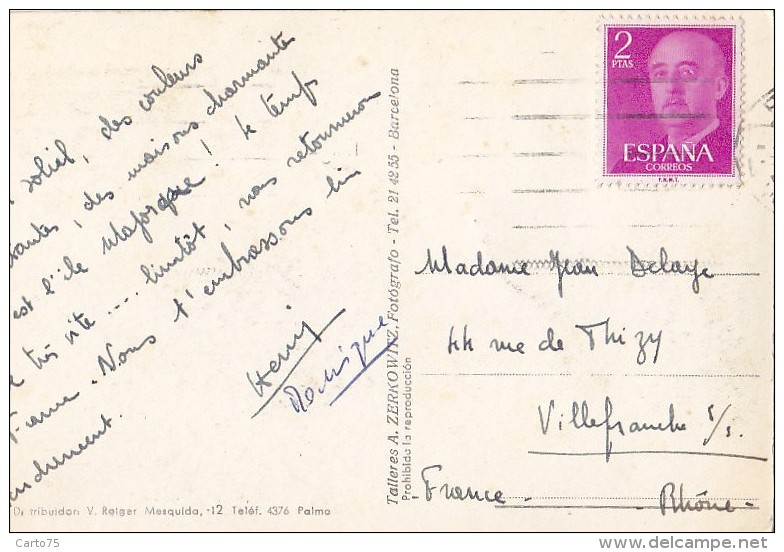 soleil, des couleurs
des maisons charmantes
est l'île Majorque ! le temps
très vite .... bientôt, nous retournerons
France. Nous t'embrassons bien
tendrement.
Henri
Monique
Distribuidor V. Rotger Mesquida, -12 Teléf. 4376 Palma
Talleres A. ZERKOWITZ, Fotógrafo - Tel. 21 42 55 - Barcelona
Prohibida la reproducción
2
PTAS
ESPAÑA
CORREOS
F.N.M.T.
Madame Jean Delaye
44 rue de Thizy
Villefranche s/s.
France - Rhône -
Carto75
delcampe.net